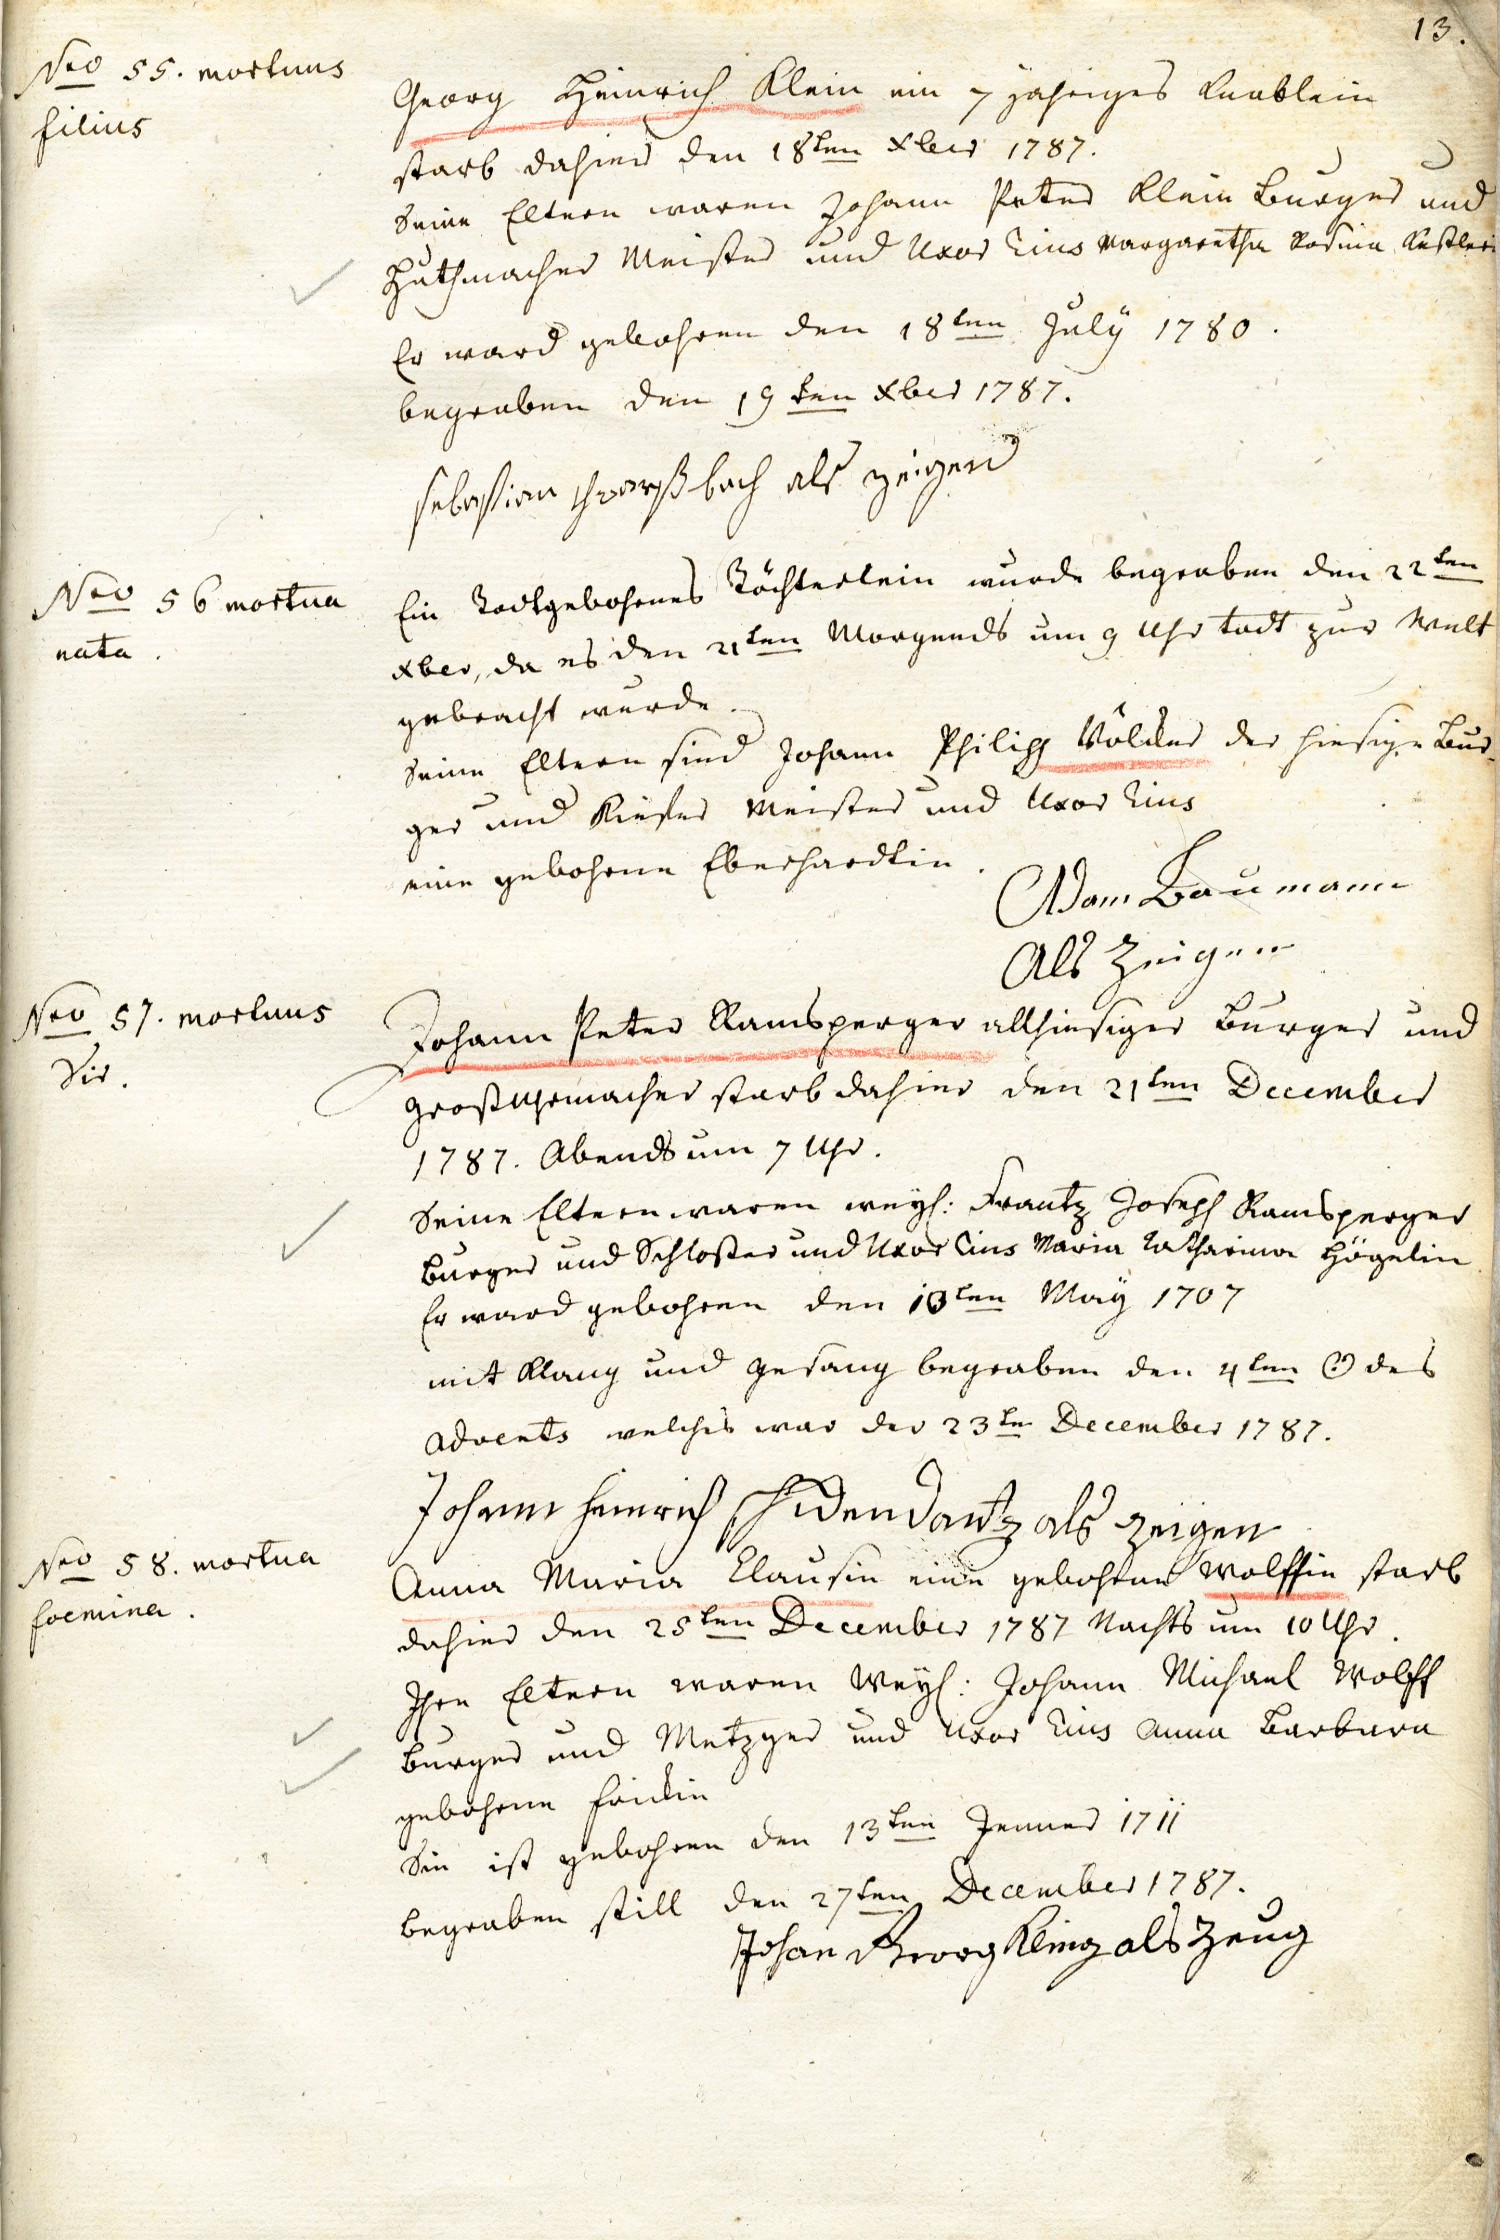 13.
Nro 55. mortuus
filius
Georg Heinrich Klein ein 7 jähriges Knäblein
starb dahier den 18ten Xber 1787.
Seine Eltern waren Johann Peter Klein Burger und
Huthmacher Meister und Uxor Eius Margaretha Rosina
Er ward gebohren den 18ten July 1780.
begraben den 19ten Xber 1787.
Sebastian als zeigen
Nro 56 mortua
nata.
Ein Todtgebohrnes Töchterlein wurde begraben den 22ten
Xber, da es den 21ten Morgends um 9 Uhr todt zur Welt
gebracht wurde.
Seine Eltern sind Johann Philipp Völcker der hiesige Bur-
ger und Kiefer Meister und Uxor Eius
eine gebohrne Eberhardtin.
Adam Baumann
Als Zeigen
Nro 57. mortuus
Vir.
Johann Peter Ramsperger allhiesiger Burger und
Großuhrmacher starb dahier den 21ten December
1787. Abends um 7 Uhr.
Seine Eltern waren weyl: Frantz Joseph Ramsperger
Burger und Schlosser und Uxor Eius Maria Catharina Högelin
Er ward gebohren den ten May 1707
mit Klang und Gesang begraben den 4ten ☉ des
Advents welches war der 23te December 1787.
Johann Heinrich Schidendantz als zeigen
Nro 58. mortua
foemina.
Anna Maria Clausin eine gebohrne Wolffin starb
dahier den 25ten December 1787 Nachts um 10 Uhr.
Ihre Eltern waren Weyl: Johann Michael Wolff
Burger und Metzger und Uxor Eius Anna Barbara
gebohrne Frickin
Sie ist gebohren den 13ten Jenner 1711
begraben still den 27ten December 1787.
Johan Georg Kling als Zeug